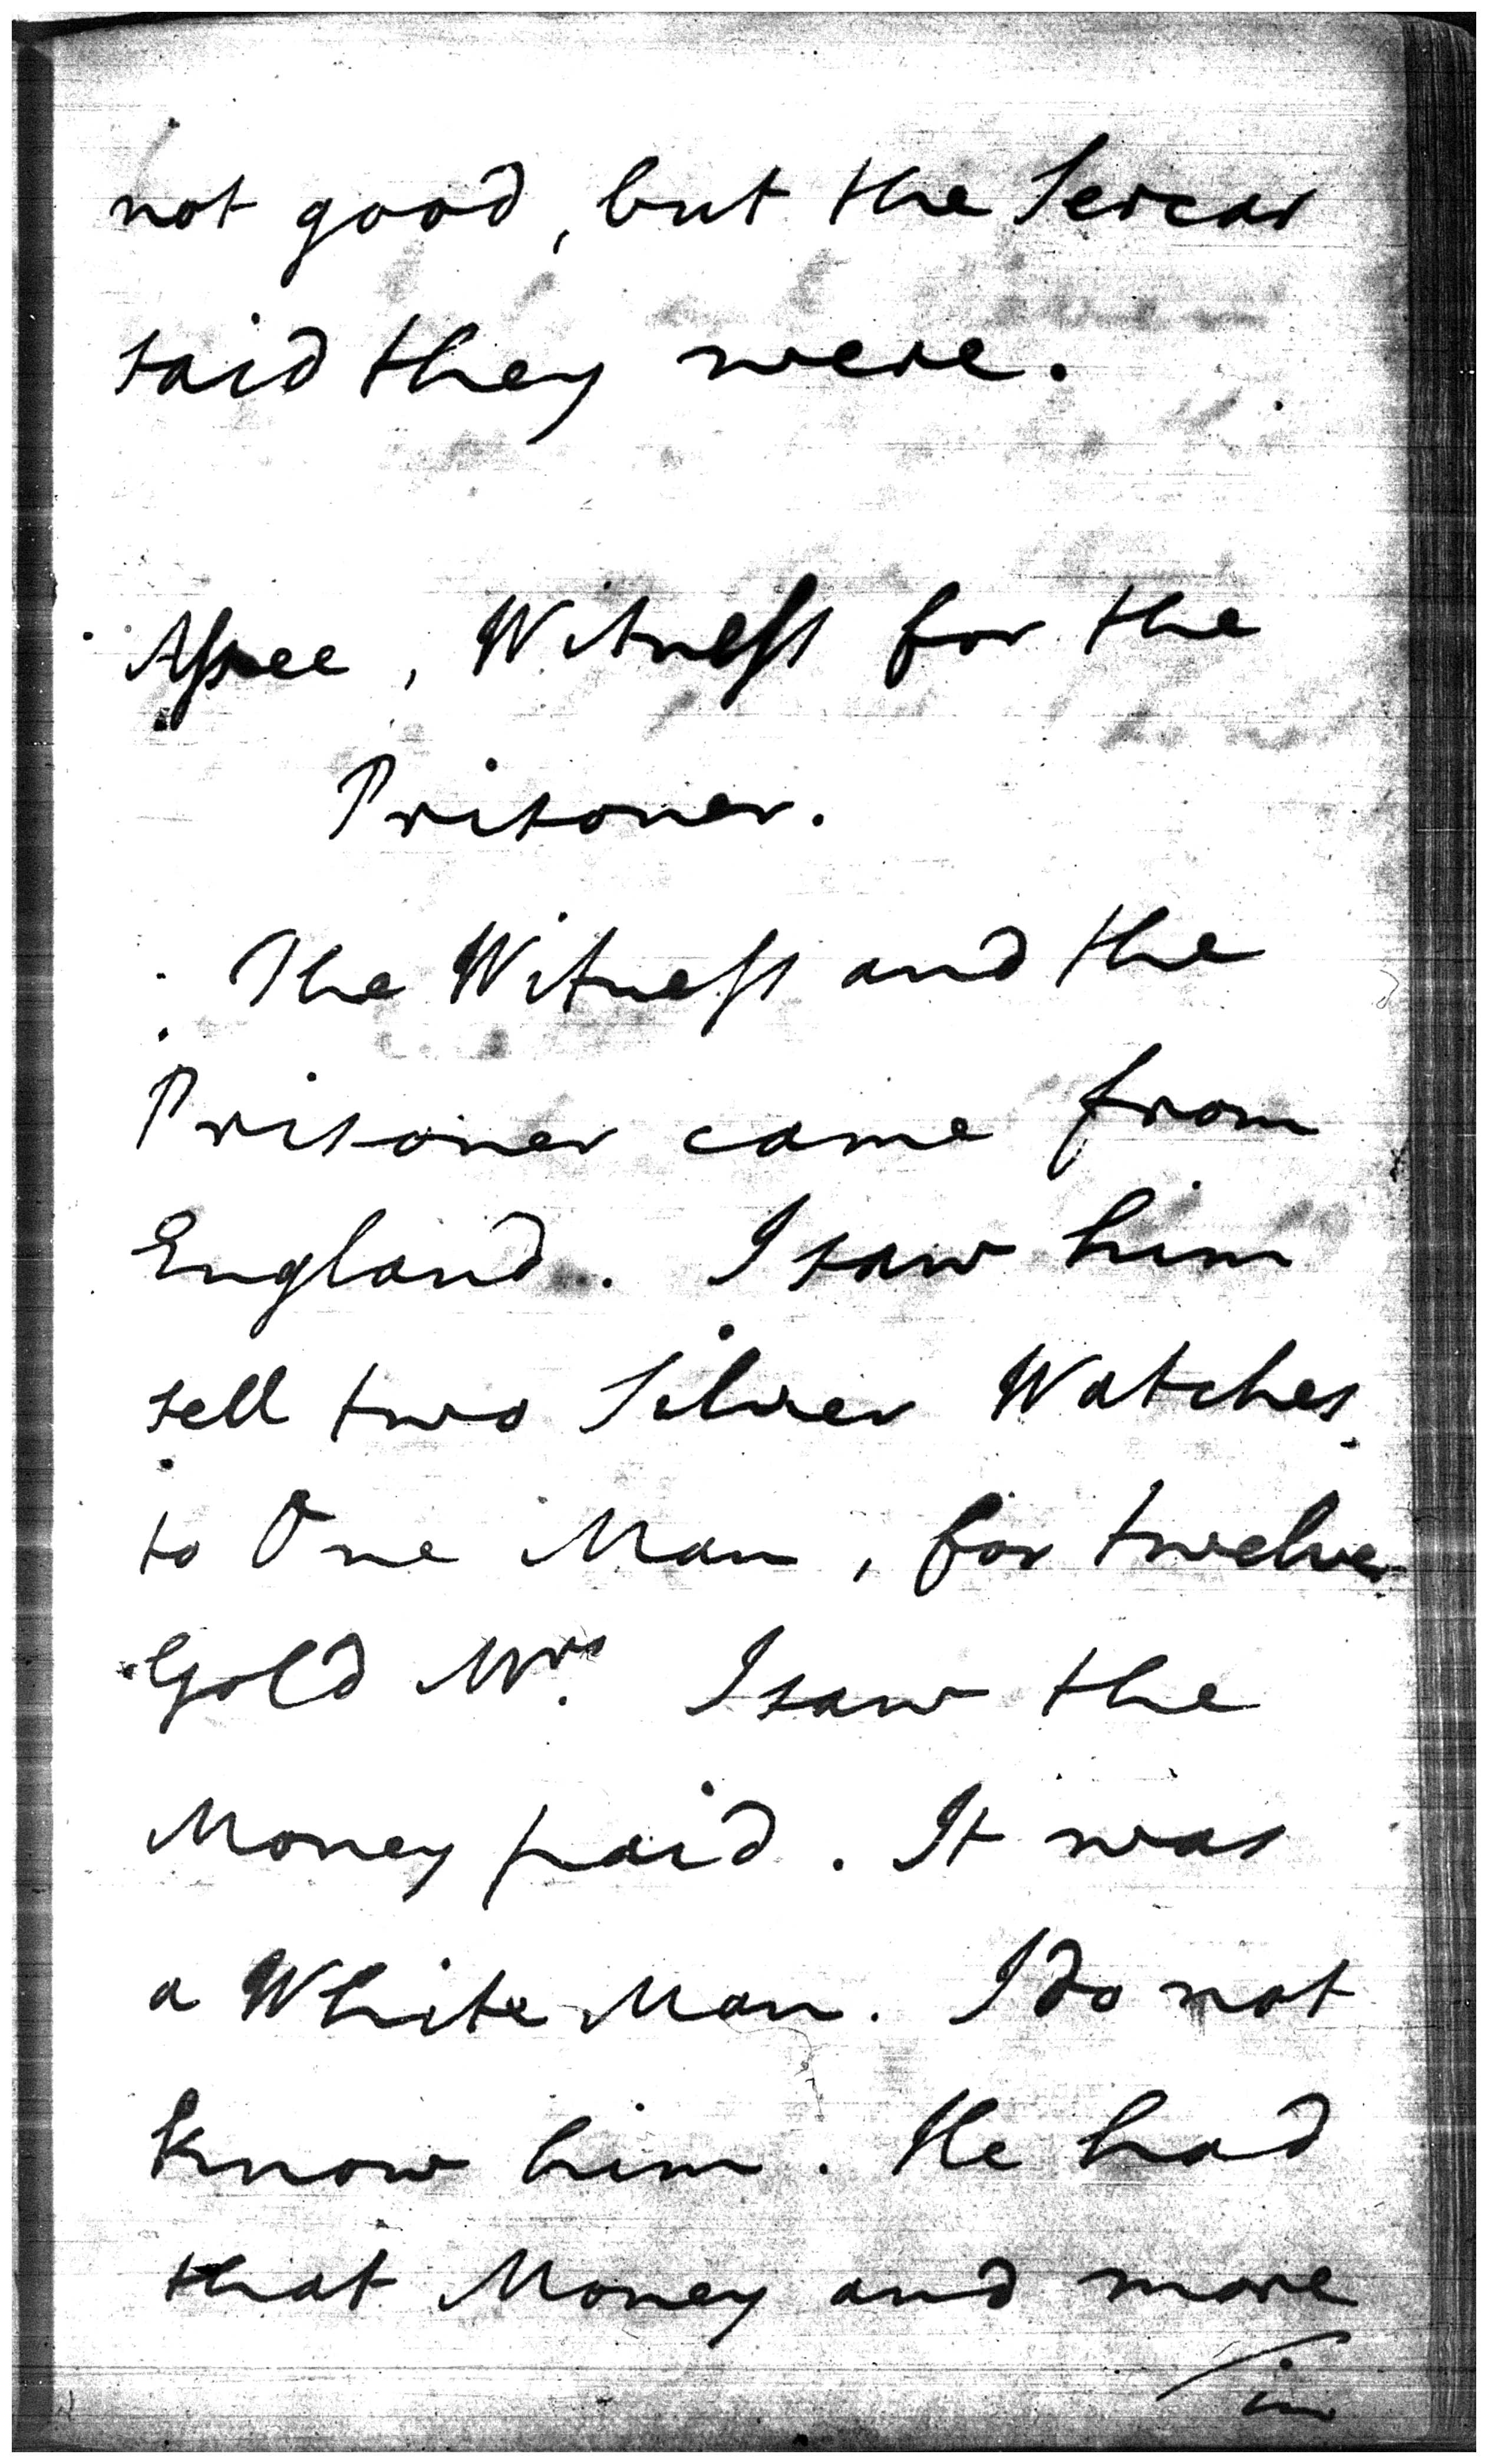 not good, but the Sercar
said they were.
Assee, Witness for the
Prisoner.
The Witness and the
Prisoner came from
England. I saw him
sell two Silver Watches
to One Man, for twelve
Gold Mrs. I saw the
Money paid. It was
a White Man. I do not
know him. He had
that Money and more
in